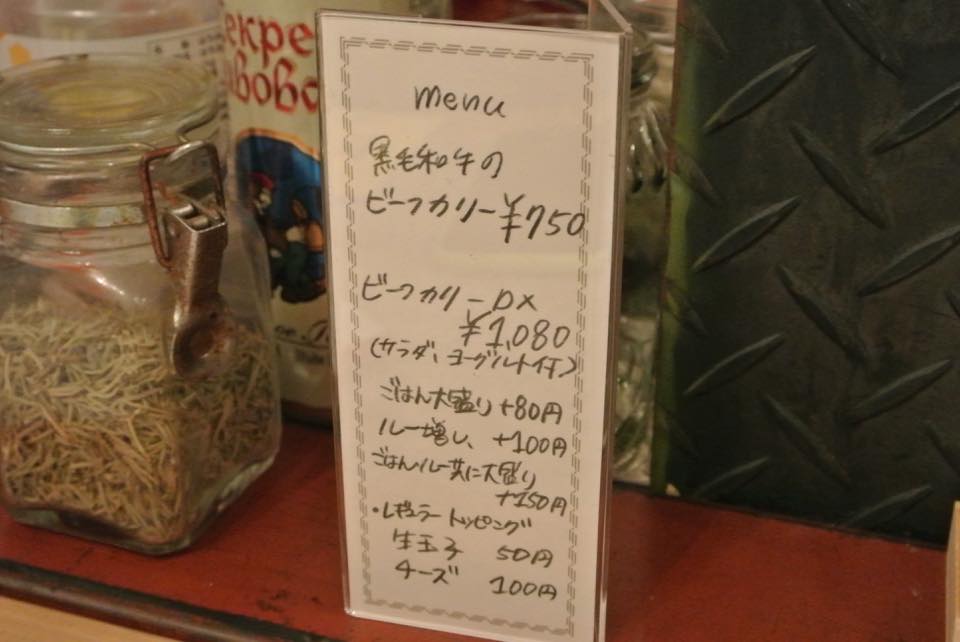 екре
ивово
menu
黒毛和牛の
ビーフカリー ¥750
ビーフカリーDX
¥1,080
(サラダ、ヨーグルト付)
ごはん大盛り +80円
ルー増し、+100円
ごはんルー共に大盛り
+150円
・レギュラートッピング
生玉子 50円
チーズ 100円